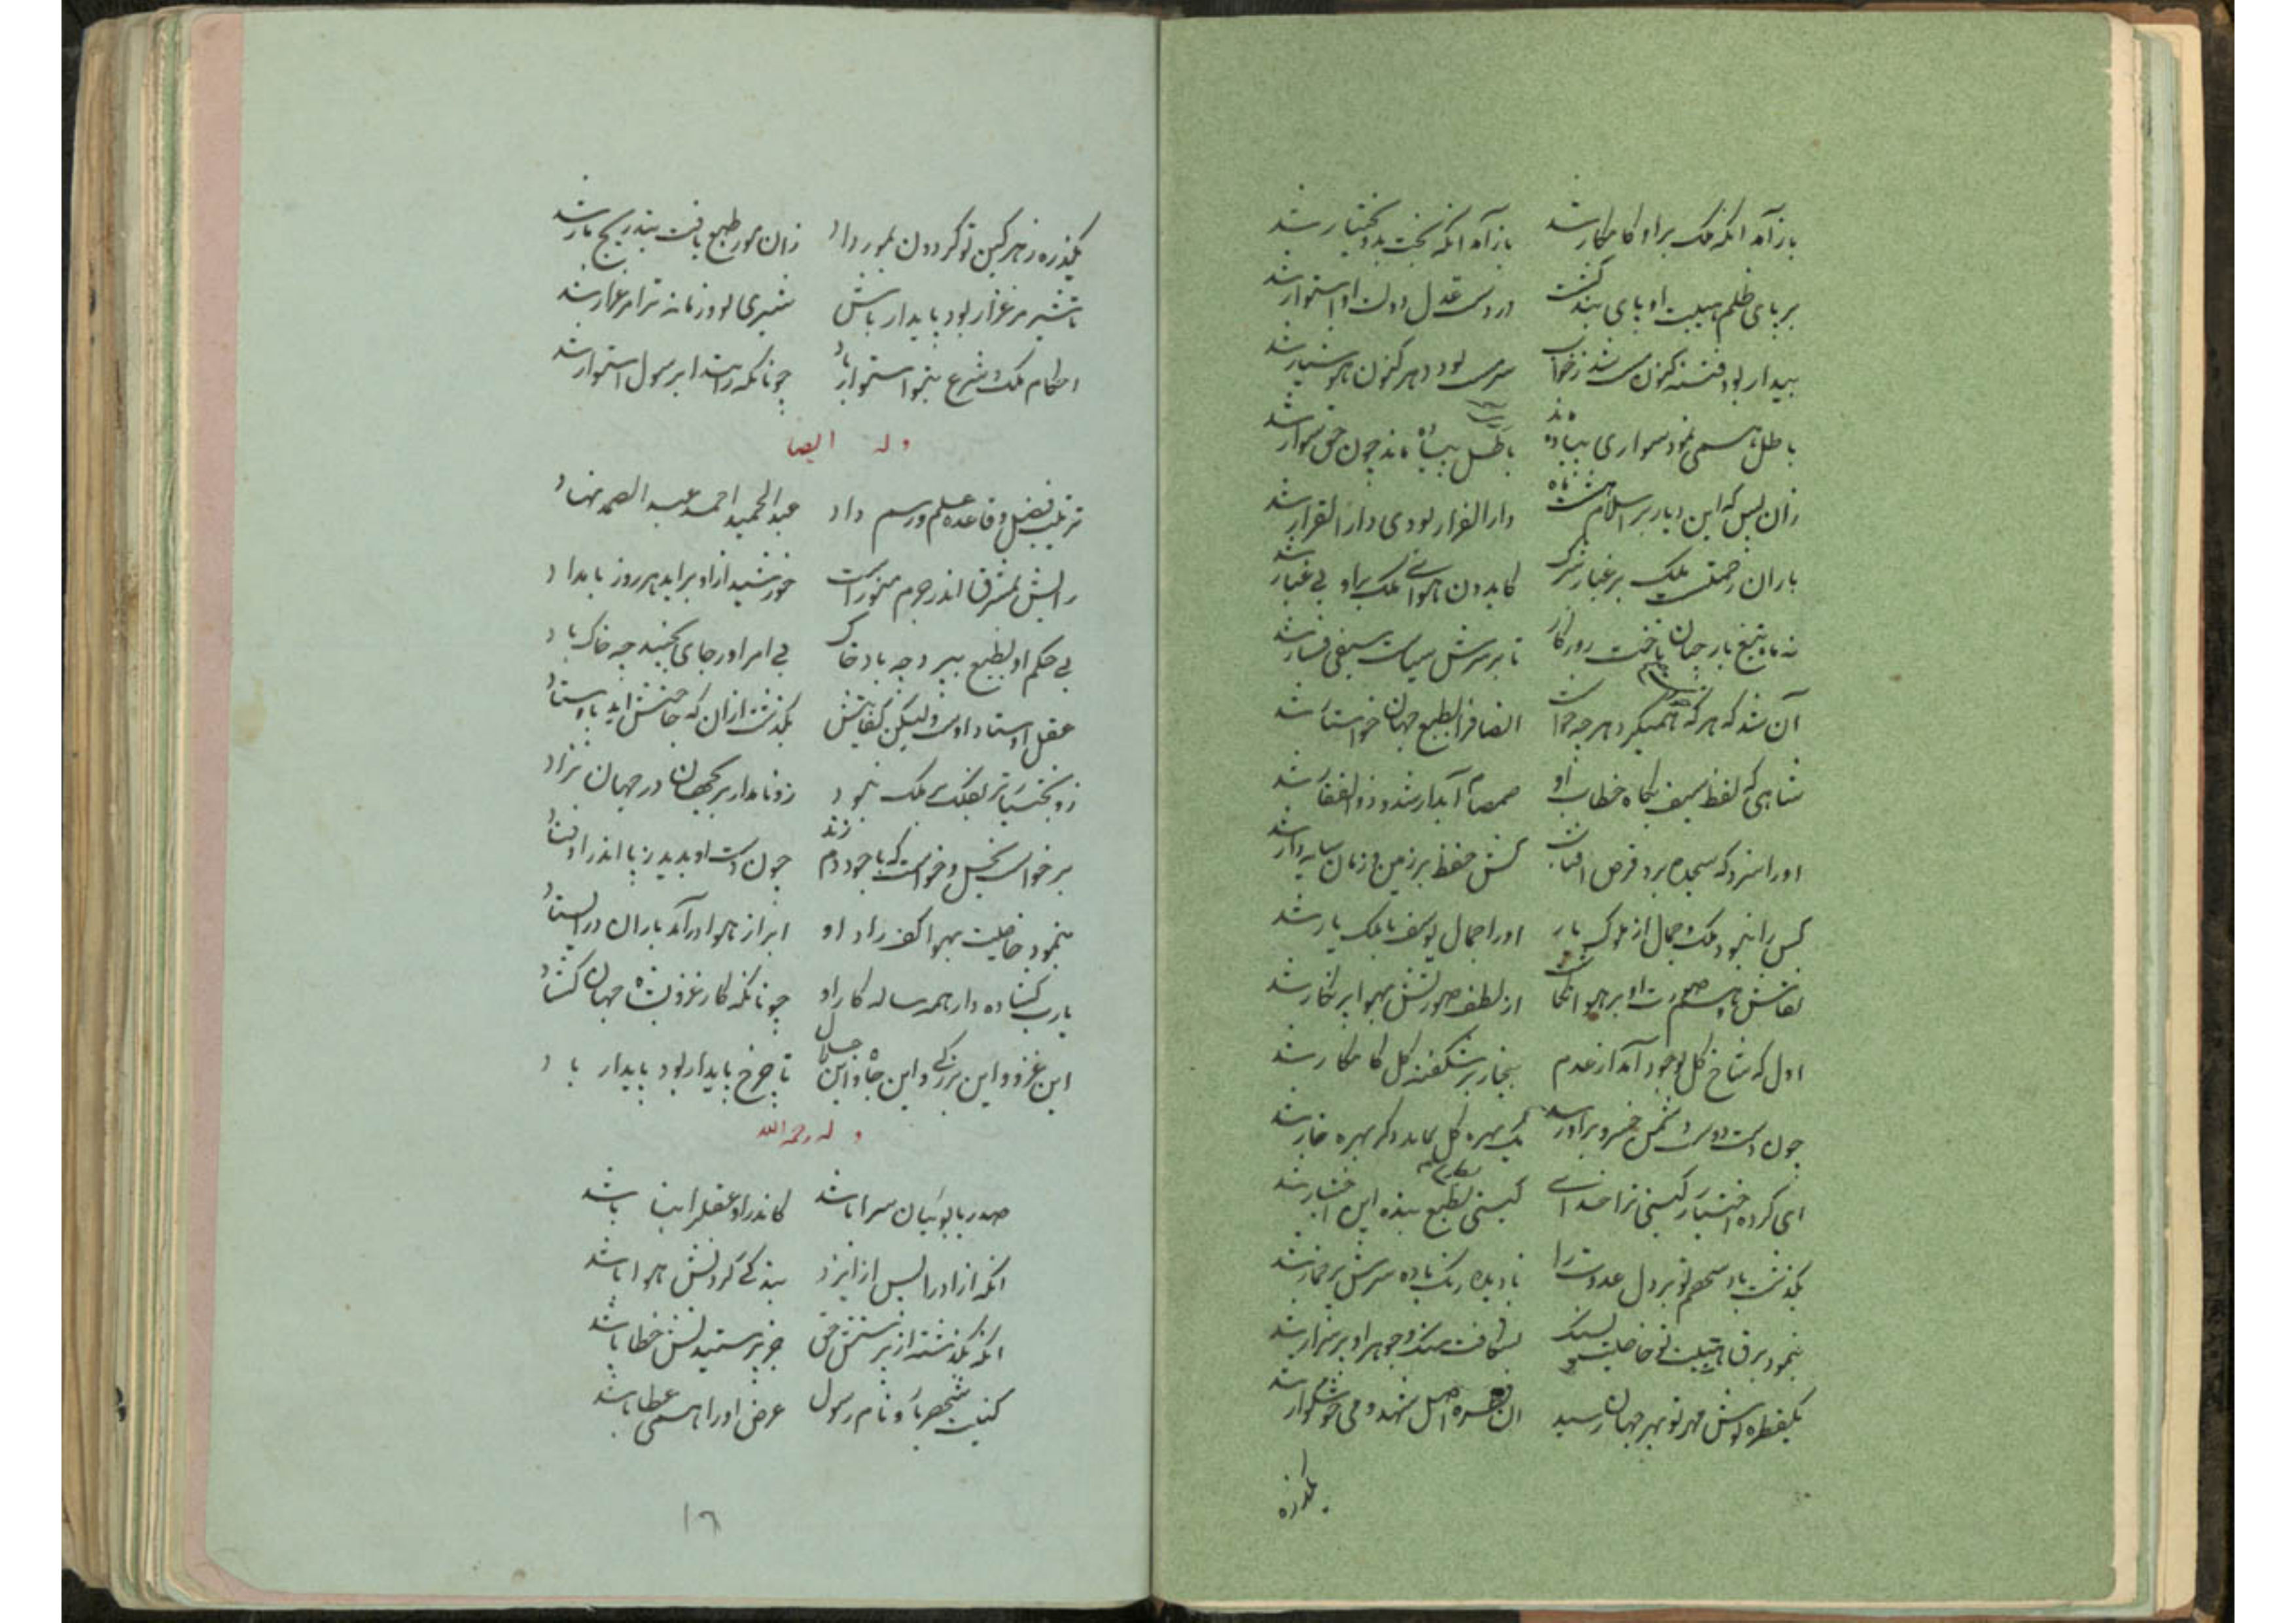 باز آمد آنکه ملک براو کامکار شد بازآمد آنکه بخت بدو بختیار شد
بر پای ظلم هیبت او پای بند گشت در دست عدل دولت او استوار شد
بیدار بود فتنه کنون مست شد ز خواب مست بود دهر کنون هوشیار شد
باطل همی نمود سواری پیاده ماند باطل پیاده ماند چون حق سوار شد
زان پس که این دیار بر اسلام دار الفرار بودی دار القرار شد
باران رحمتست ملک بر غبار شرک کایدون هوای ملک براو بی غبار شد
نه ماه تیغ بار جهان باخت روزگار تا بر سرش سیاست سیفی فسار شد
آن شد که هر که همیکرد هرچه خواست انصاف را بطبع جهان خواستار شد
شاهی که لفظ سیف بگاه خطاب او صمصام آبدار شد و ذوالفقار شد
اورا سزد که سجده برد قرص آفتاب کش حفظ بر زمین و زمان سایه دار شد
کس را نبود ملک و جمال از ملوک بار اورا جمال یوسف با ملک یار شد
نقاش صورت او بر هوا از لطف صورتش بهوا بر نگار شد
اول که شاخ گل بوجود آمد از عدم بیخار بر شکفته گل کامکار شد
چون دست دوست و دشمن خسرو بر او رسید یک بهره گل بماند و دگر بهره خار شد
ای کرده اختیار گیتی ترا خدای گیتی بطبع بنده این اختیار شد
بگذشت باد سهم تو بر دل عدوت را نادیده رنگ باده سرش پر خمار شد
بنمود برق هیبت تو خاصیت بسنگ بشکافت سنگ و جوهر او پر شرار شد
یکقطره نوش مهر تو بهر جهان رسید آن قطره اصل شهد و می خوشگوار شد
یکذره
یکذره زهر کین تو گردون بمور داد زان مور طبع یافت بتدریج مار شد
تا شیر مرغزار بود پایدار باش شیری تو و زمانه ترا مرغزار شد
احکام ملک و شرع بتو استوار باد چونانکه راست از رسول استوار شد
وله ایضا
ترتیب فضل و قاعده علم و رسم داد عبدالحمید احمد عبدالصمد نهاد
رایش بمشرق اندر جرم منورست خورشید ازاو براید هر روز بامداد
بی حکم او بطبع نبرد چه باد خاک بی امر او ز جای نجنبد چه خاک باد
عقل اوستاد اوست ولیکن کفایتش بگذشت ازان که حاجتش اید باوستاد
زو بختیارتر بفلک بر ملک نبود زو نامدار تر بجهان در جهان نزاد
بر خواست بخل و خواست که با جود دم زند چون دست او بدید ز پا اندر اوفتاد
بنمود خاصیت بهوا کف راد او ابر از هوا درآمد باران در ایستاد
یارب گشاده دار همه ساله کار او چونانکه کار غزو بشاه جهان گشاد
این عز و این بزرگی و این جاه و این جلال تا چرخ پایدار بود پایدار باد
وله رحمه الله
صدر با بوستان سرا باشد کاندر او عقل را بنا باشد
انکه ازاد را پس از ایزد بندگی کردنش هوا باشد
انکه بگذشته از پرستش حق جز پرستیدنش خطا باشد
کنیت شهریار و نام رسول عرض اورا همی عطا باشد
۱۶